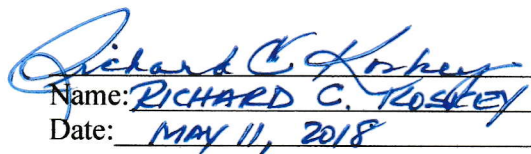 Richard C. Koskey
Name: RICHARD C. KOSKEY
Date: MAY 11, 2018